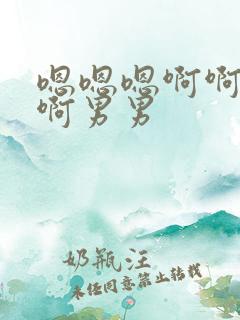 嗯嗯嗯啊啊
啊男男
奶瓶汪
未经同意禁止转载